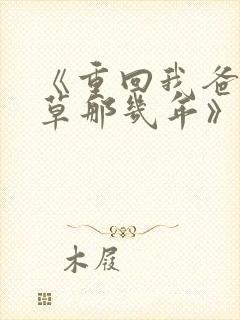 《重回我爸
草那几年》
木屐